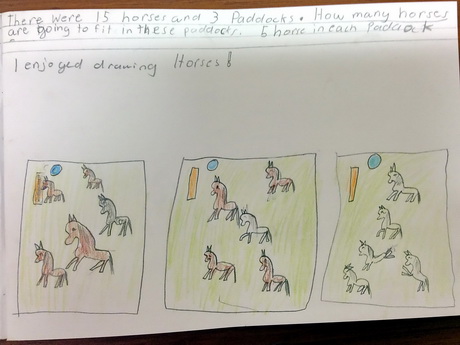 There were 15 horses and 3 Paddocks. How many horses
are going to fit in these puddocks. 5 horse in each Paddock
I enjoyed drawing Horses!